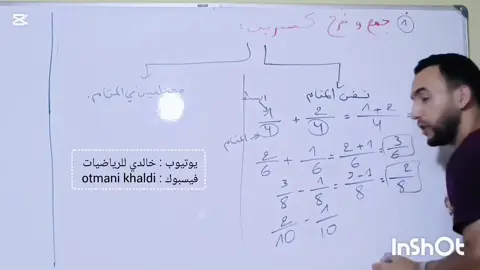 ① جمع و طرح كسرين :
نفس المقام
مختلفين في المقام.
البسط
المقام
1/4 + 2/4 = 1+2/4 =
2/6 + 1/6 = 2+1/6 = 3/6
3/8 - 1/8 = 3-1/8 = 2/8
2/10 - 1/10
يوتيوب : خالدي للرياضيات
فيسبوك : otmani khaldi
InShOt